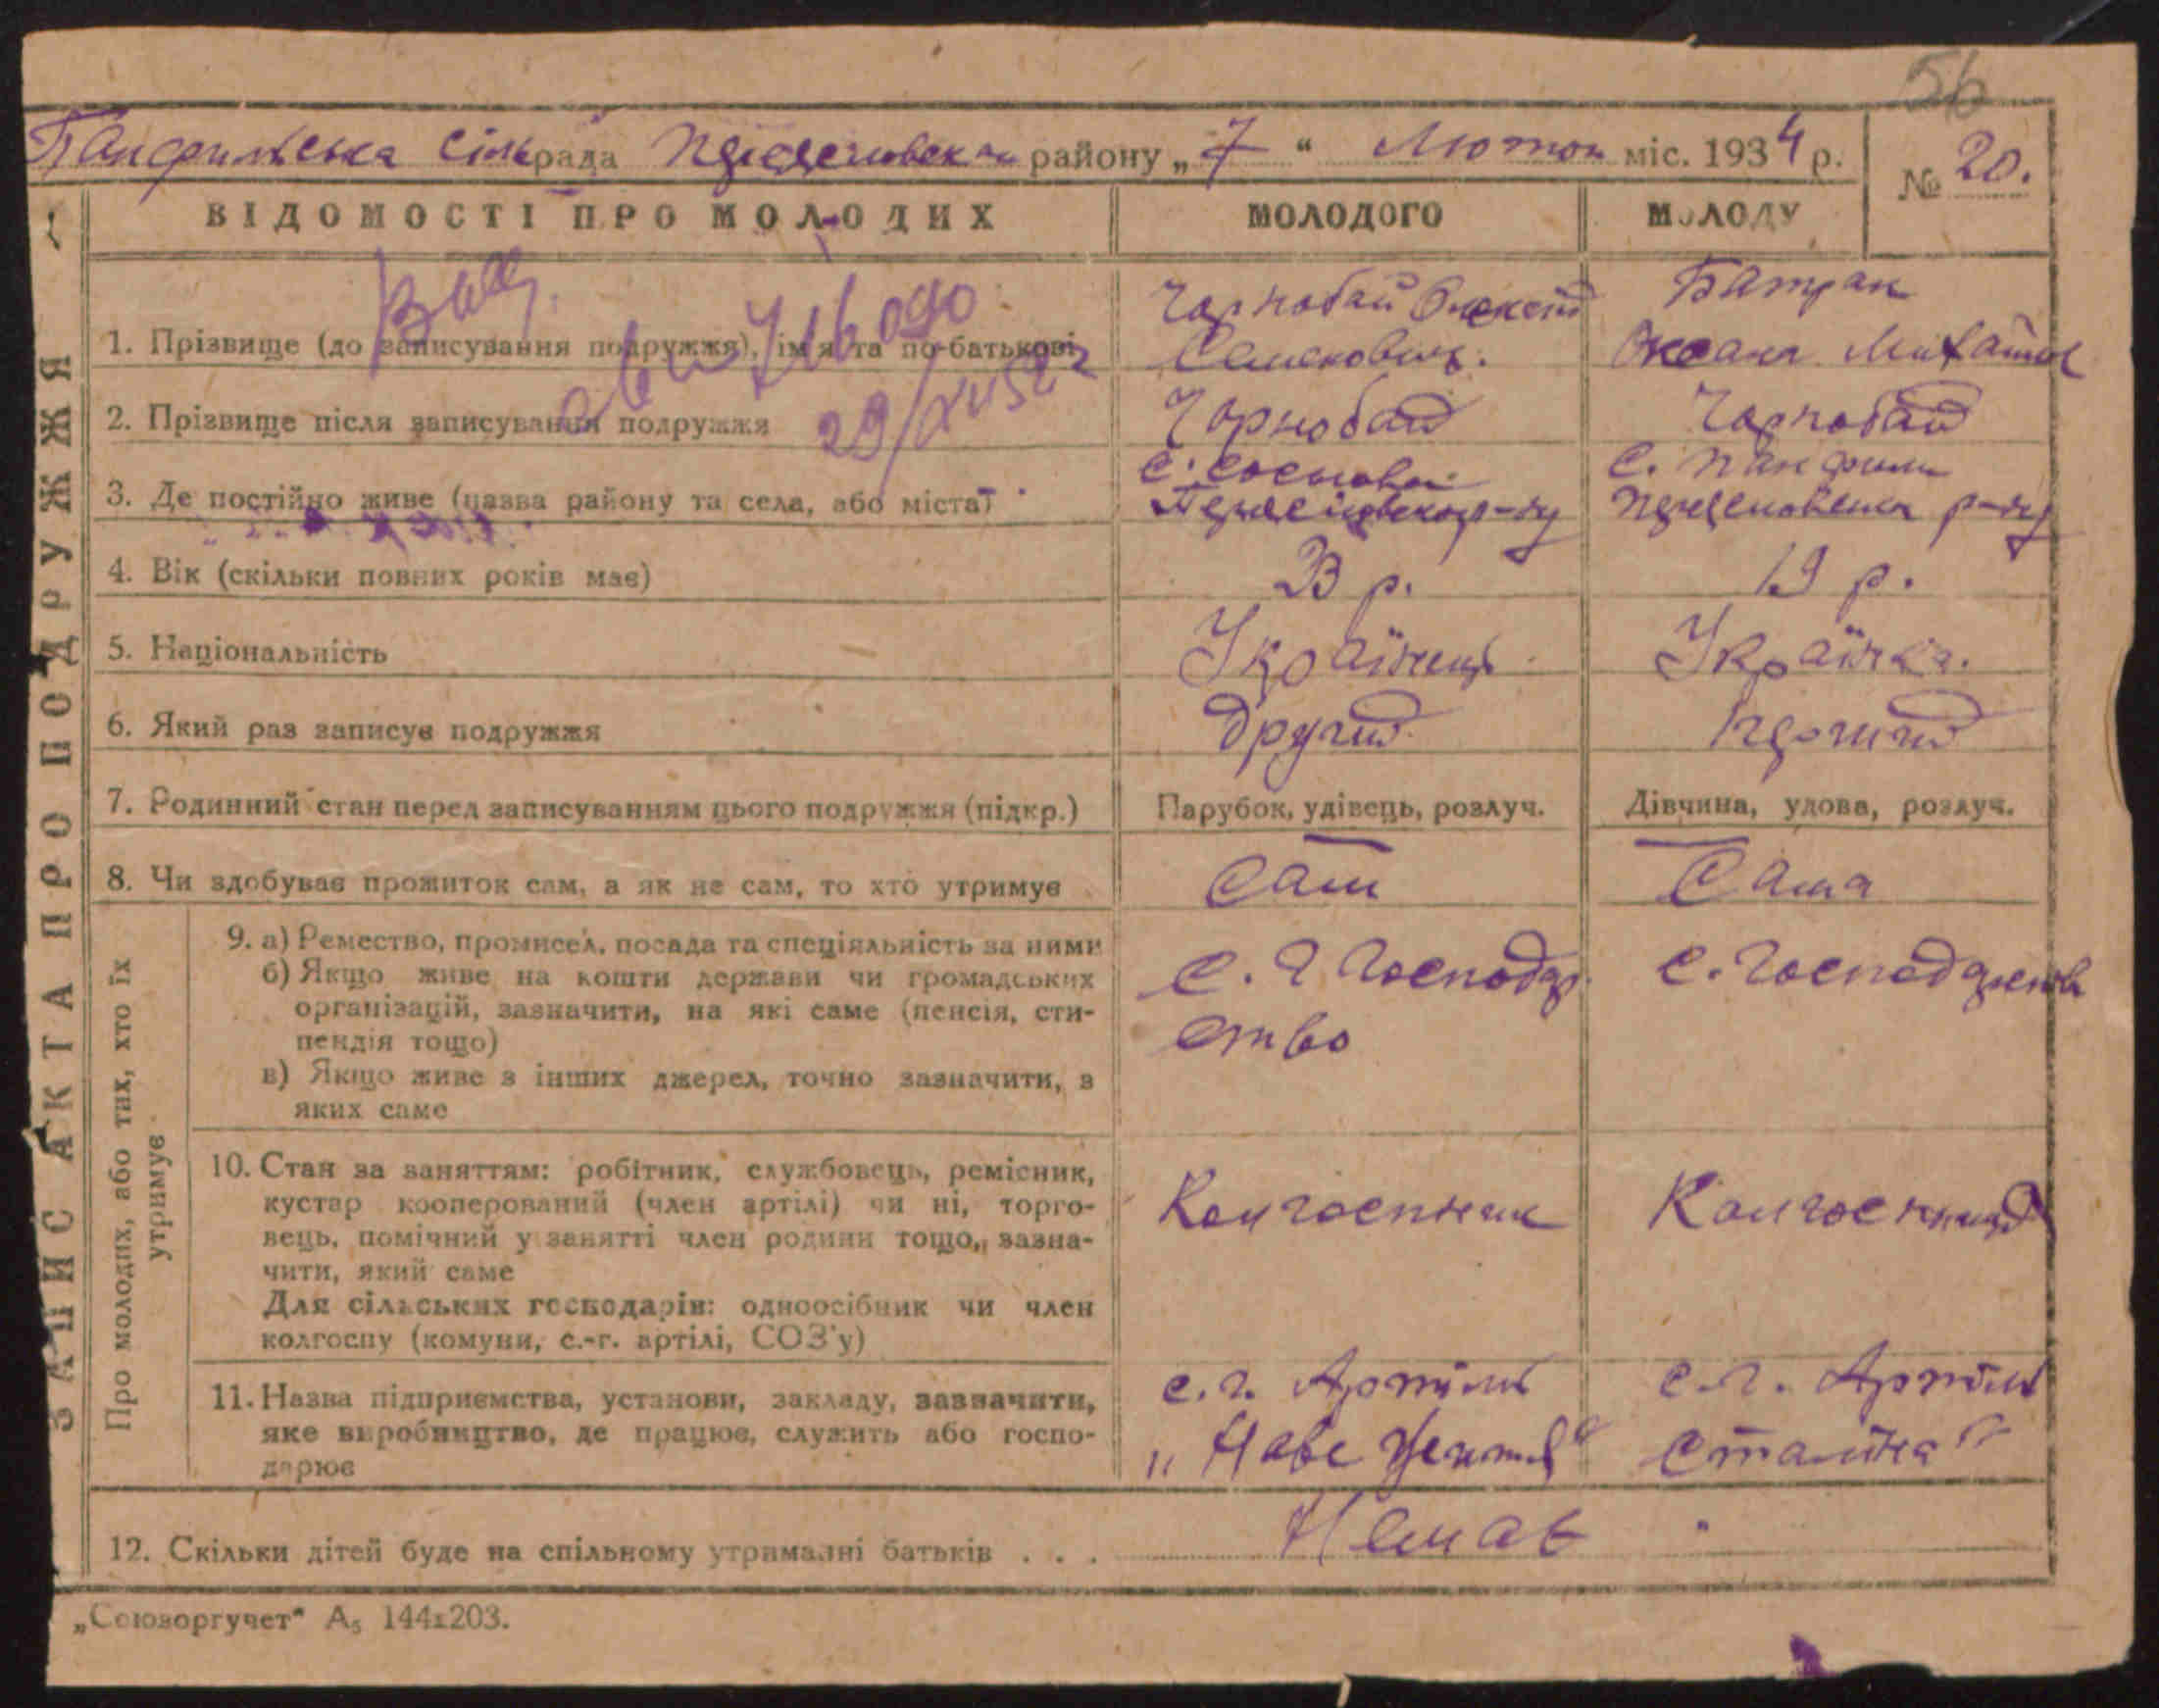 56
Панфильська сільрада району „7“ Лютого міс. 1934 р.
№ 20.
ЗАПИС АКТА ПРО ПОДРУЖЖЯ
ВІДОМОСТІ ПРО МОЛОДИХ МОЛОДОГО МОЛОДУ
1. Прізвище (до записування подружжя), ім'я та по-батькові
Чорнобай Олексій
Семенович.
Батрак
Оксана
2. Прізвище після записування подружжя Чорнобай Чорнобай
3. Де постійно живе (назва району та села, або міста)
с. Соснова
р-ну
с. Панфили
р-ну
4. Вік (скільки повних років має) 23 р. 19 р.
5. Національність Українець Українка.
6. Який раз записує подружжя другий перший
7. Родинний стан перед записуванням цього подружжя (підкр.) Парубок, удівець, розлуч. Дівчина, удова, розлуч.
8. Чи здобуває прожиток сам, а як не сам, то хто утримує Сам Сама
Про молодих, або тих, хто їх
утримує
9. а) Ремество, промисел, посада та спеціяльність за ними
б) Якщо живе на кошти держави чи громадських
організацій, зазначити, на які саме (пенсія, сти-
пендія тощо)
в) Якщо живе з інших джерел, точно зазначити, з
яких саме
с. г господар
ство
с. господарств
10. Стан за заняттям: робітник, службовець, ремісник,
кустар кооперований (член артілі) чи ні, торго-
вець, помічний у занятті член родини тощо, зазна-
чити, який саме
Для сільських господарів: одноосібник чи член
колгоспу (комуни, с.-г. артілі, СОЗ'у)
Колгоспник
Колгоспниця
11. Назва підприємства, установи, закладу, зазначити,
яке виробництво, де працює, служить або госпо-
дарює
с.г. Артіль
„Нове Життя“
с.г. Артіль
Сталіна"
12. Скільки дітей буде на спільному утриманні батьків . . . Немає
„Союзоргучет" А₅ 144х203.